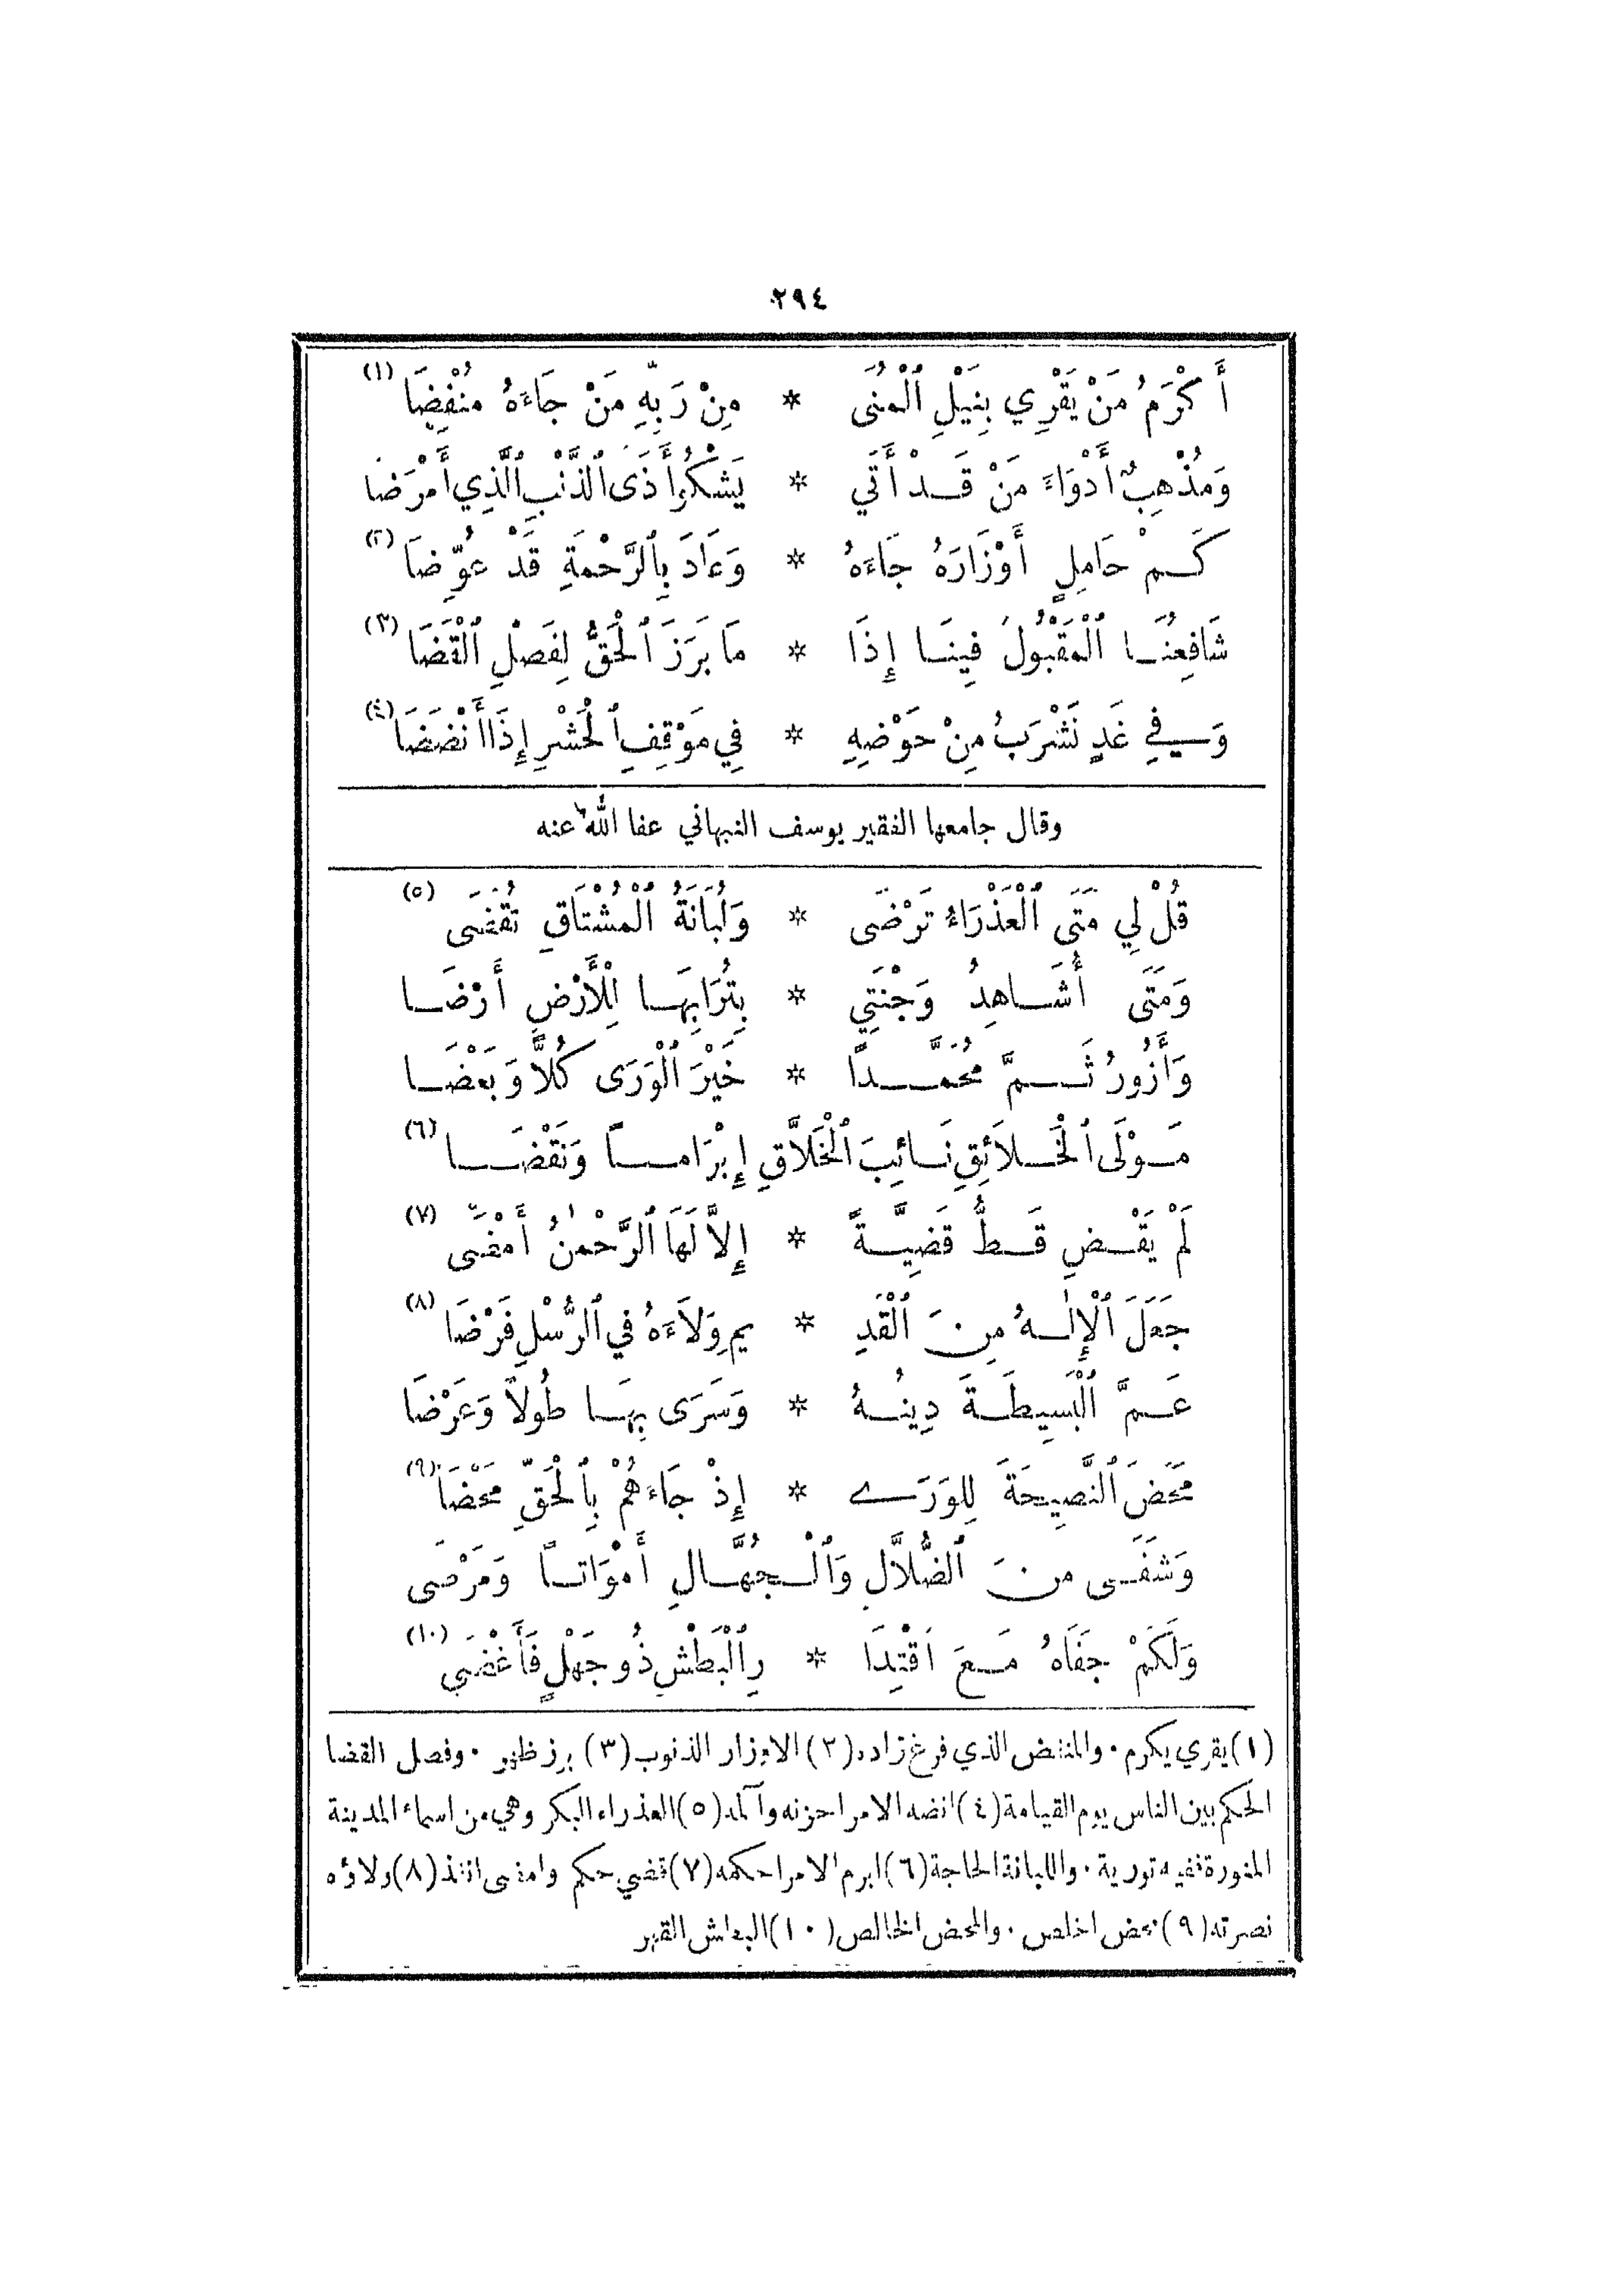 ٢٩٤
أَكْرَمُ مَنْ يَقْرِي بِنَيْلِ ٱلْمُنَى * مِنْ رَبِّهِ مَنْ جَاءَهُ مُنْفِضَا (١)
وَمُذْهِبٌ أَدْوَاءَ مَنْ قَدْ أَتَى * يَشْكُو أَذَى ٱلذَّنْبِ ٱلَّذِي أَمْرَضَا
كَمْ حَامِلٍ أَوْزَارَهُ جَاءَهُ * وَعَادَ بِٱلرَّحْمَةِ قَدْ عُوِّضَا (٢)
شَافِعُنَا ٱلْمَقْبُولُ فِينَا إِذَا * مَا بَرَزَ ٱلْحَقُّ لِفَصْلِ ٱلْقَضَا (٣)
وَفِي غَدٍ نَشْرَبُ مِنْ حَوْضِهِ * فِي مَوْقِفِ ٱلْحَشْرِ إِذَا أَنْضَضَا (٤)
وقال جامعها الفقير يوسف النبهاني عفا الله عنه
قُلْ لِي مَتَى ٱلْعَذْرَاءُ تَرْضَى * وَلُبَانَةُ ٱلْمُشْتَاقِ تُقْضَى (٥)
وَمَتَى أُشَاهِدُ وَجْنَتِي * بِتُرَابِهَا لِلْأَرْضِ أَرْضَا
وَأَزُورُ ثَمَّ مُحَمَّداً * خَيْرَ ٱلْوَرَى كُلاًّ وَبَعْضَا
مَوْلَى ٱلْخَلاَئِقِ نَائِبَ ٱلْخَلاَّقِ إِبْرَاماً وَنَقْضَا (٦)
لَمْ يَقْضِ قَطُّ قَضِيَّةً * إِلاَّ لَهَا ٱلرَّحْمٰنُ أَمْضَى (٧)
جَعَلَ ٱلْإِلٰهُ مِنَ ٱلْقَدِ * يمِ وِلاَءَهُ فِي ٱلرُّسْلِ فَرْضَا (٨)
عَمَّ ٱلْبَسِيطَةَ دِينُهُ * وَسَرَى بِهَا طُولاً وَعَرْضَا
مَحَضَ ٱلنَّصِيحَةَ لِلوَرَى * إِذْ جَاءَهُمْ بِٱلْحَقِّ مَحْضَا (٩)
وَشَفَى مِنَ ٱلضُّلاَّلِ وَٱلْجُهَّالِ أَمْوَاتاً وَمَرْضَى
وَلَكَمْ جَفَاهُ مَعَ ٱقْتِدَا * رِ ٱلْبَطْشِ ذُو جَهْلٍ فَأَغْضَى (١٠)
(١) يقري يكرم . والمنفض الذي فرغ زاده (٢) الاوزار الذنوب (٣) برز ظهر . وفصل القضا
الحكم بين الناس يوم القيامة (٤) انضه الامر احزنه وآلمه (٥) العذراء البكر وهي من اسماء المدينة
المنورة ففيه تورية . واللبانة الحاجة (٦) ابرم الامر احكمه (٧) قضى حكم وامضى انفذ (٨) ولاؤه
نصرته (٩) محض اخلص . والمحض الخالص (١٠) البطش القهر